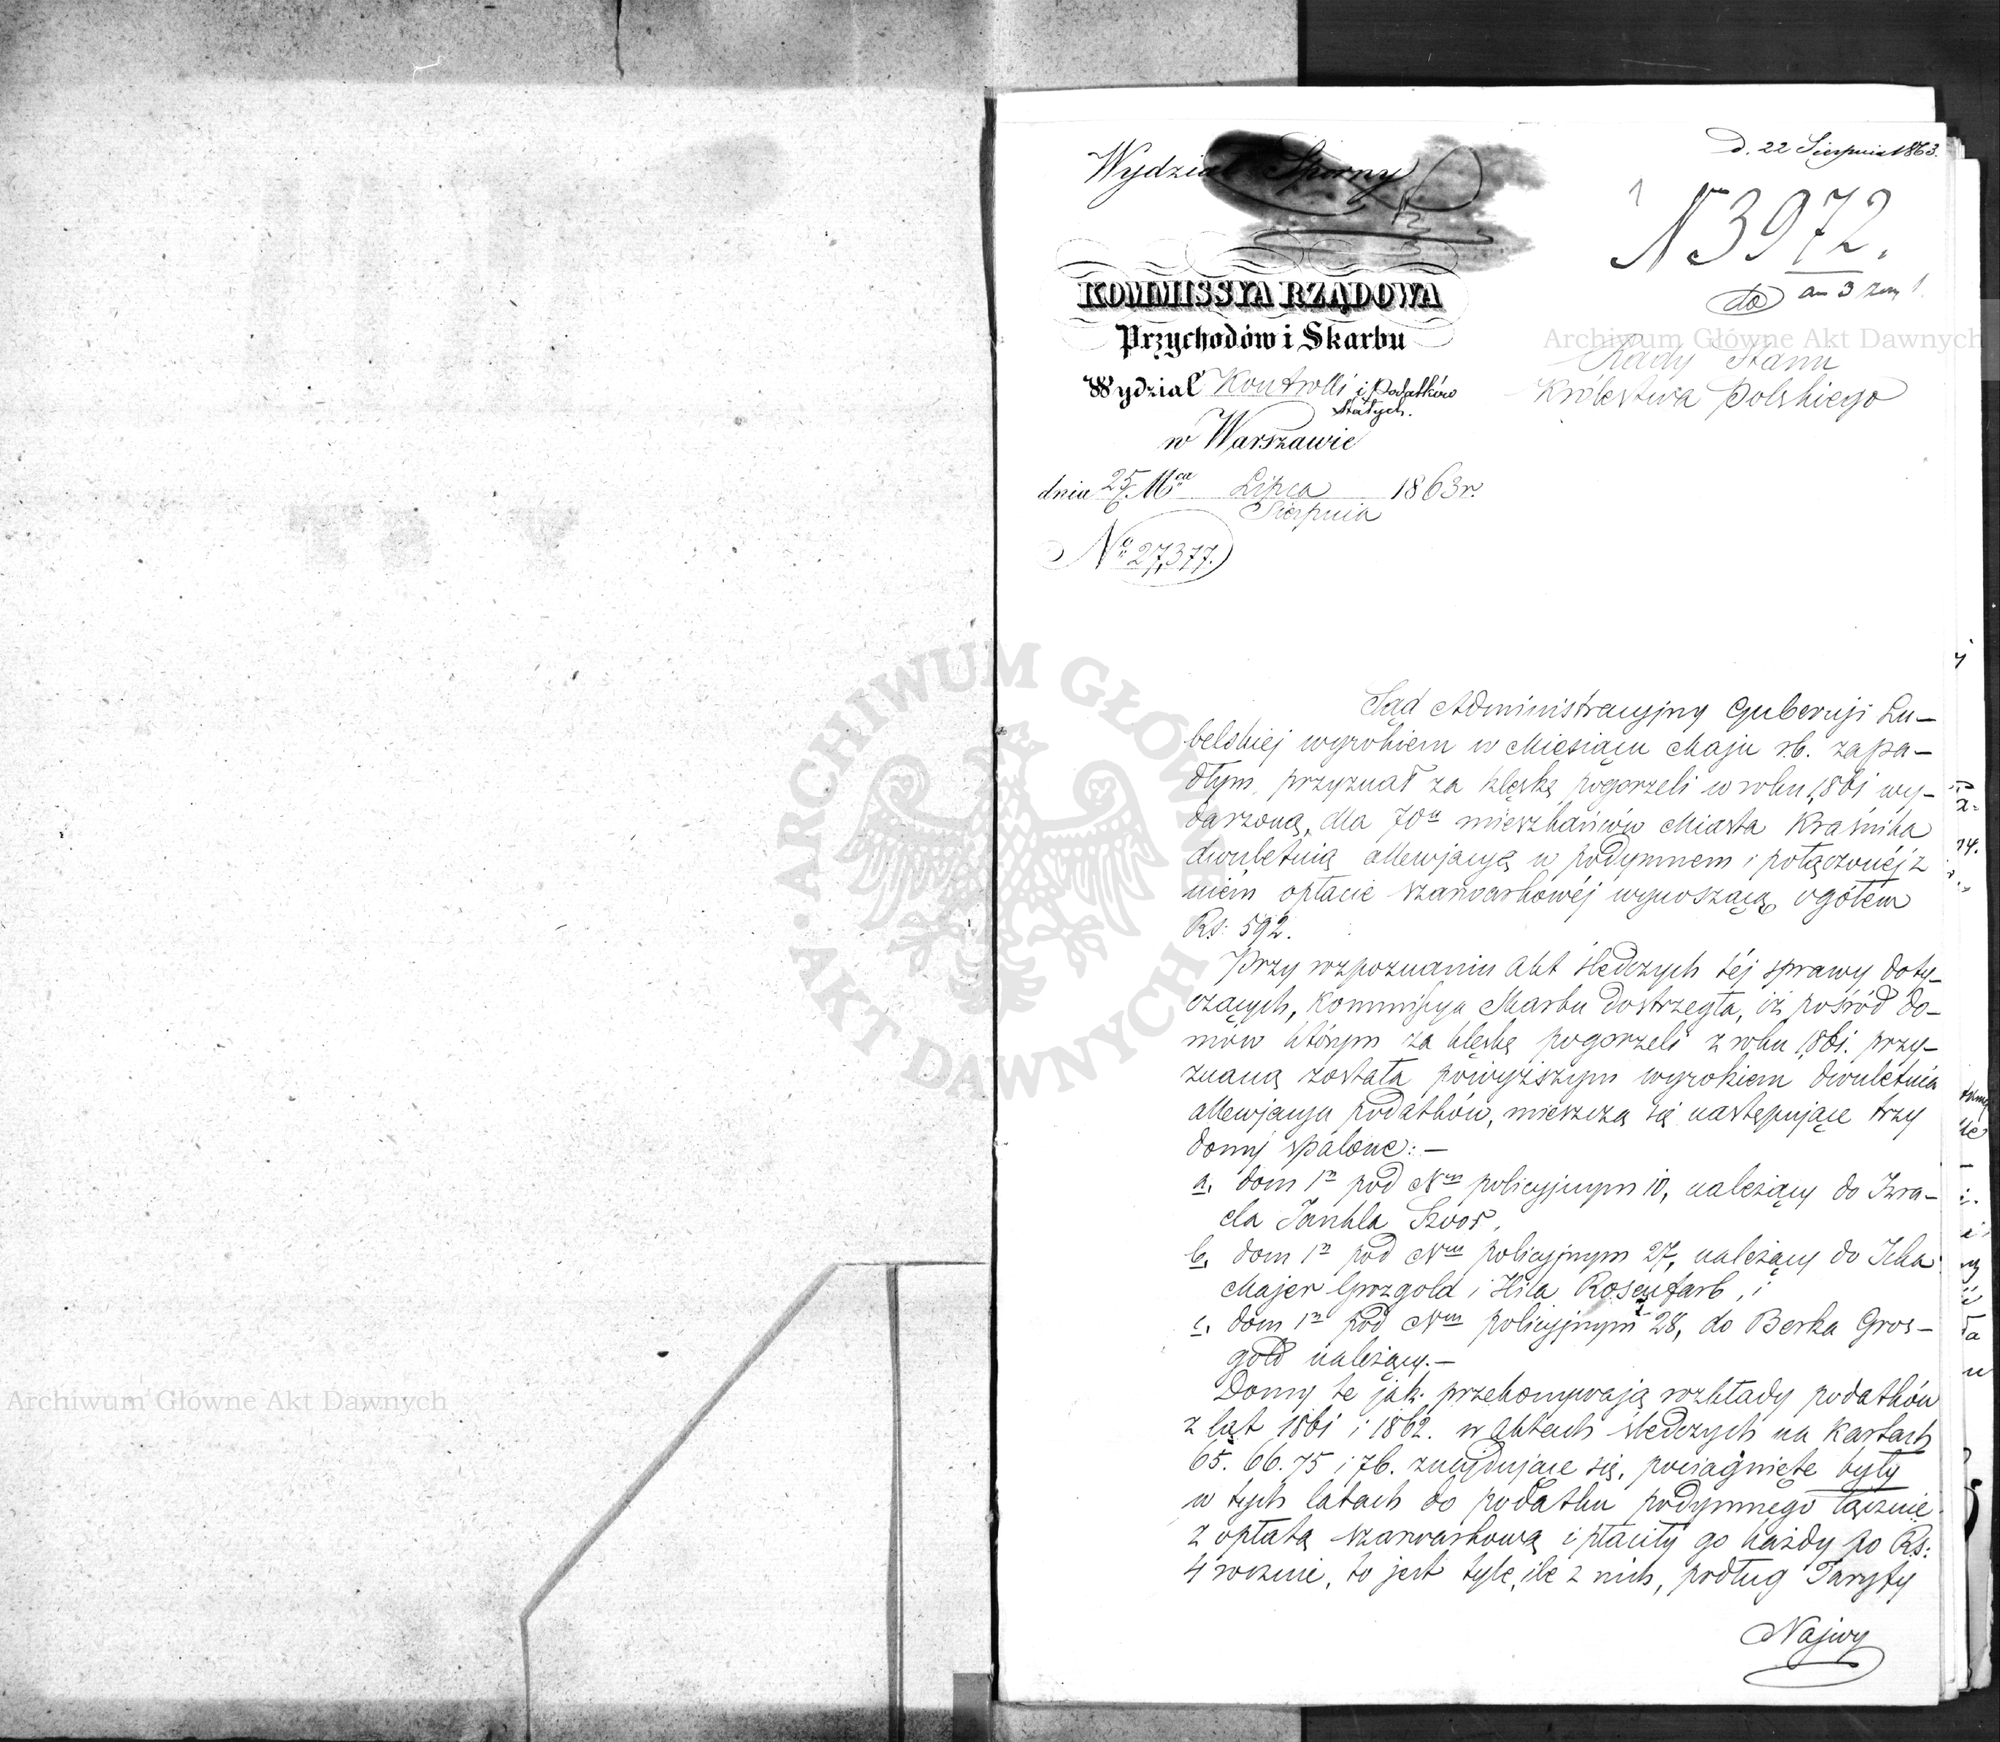 D. 22 Sierpnia 1863.
Wydział Sporny
N 3972.
do
Rady Stanu
Królestwa Polskiego
KOMMISSYA RZĄDOWA
Przychodów i Skarbu
Wydział Kontrolli i Podatków
Stałych.
w Warszawie
dnia 25/6 Mca Lipca 1863 r.
Sierpnia
No 27,377.
Sąd Administracyjny Gubernji Lu–
belskiej wyrokiem w Miesiącu Maju r.b. zapa–
dłym, przyznał za klęskę pogorzeli w roku 1861 wy–
darzoną, dla 70u mieszkańców Miasta Kraśnika
dwuletnią allewjacyą w podymnem i połączonéj z
niém opłacie szarwarkowéj wynoszącą ogółem
Rs: 592.
Przy rozpoznaniu Akt śledczych téj sprawy doty–
czących, Kommissya Skarbu dostrzegła, iż pośród do–
mów którym za klęskę pogorzeli z roku 1861. przy–
znaną została powyższym wyrokiem dwuletnia
allewjacya podatków, mieszczą się następujące trzy
domy spalone: –
a, dom 1n pod Nrm policyjnym 10, należący do Izra–
ela Jankla Szvor,
b, dom 1n pod Nrm policyjnym 27, należący do Icka
Majer Grozgold i Hila Rosenfarb, i
c, dom 1n pod Nrm policyjnym 28, do Berka Gros–
gold należący. –
Domy te jak przekonywają rozkłady podatków
z lat 1861 i 1862. w aktach śledczych na kartach
65. 66. 75 i 76. znajdujące się, pociągnięte były
w tych latach do podatku podymnego łącznie
z opłatą szarwarkową i płaciły go każdy po Rs:
4 rocznie, to jest tyle, ile z nich, podług Taryfy
Najwy
Archiwum Główne Akt Dawnych
Archiwum Główne Akt Dawnych
ARCHIWUM GŁÓWNE AKT DAWNYCH